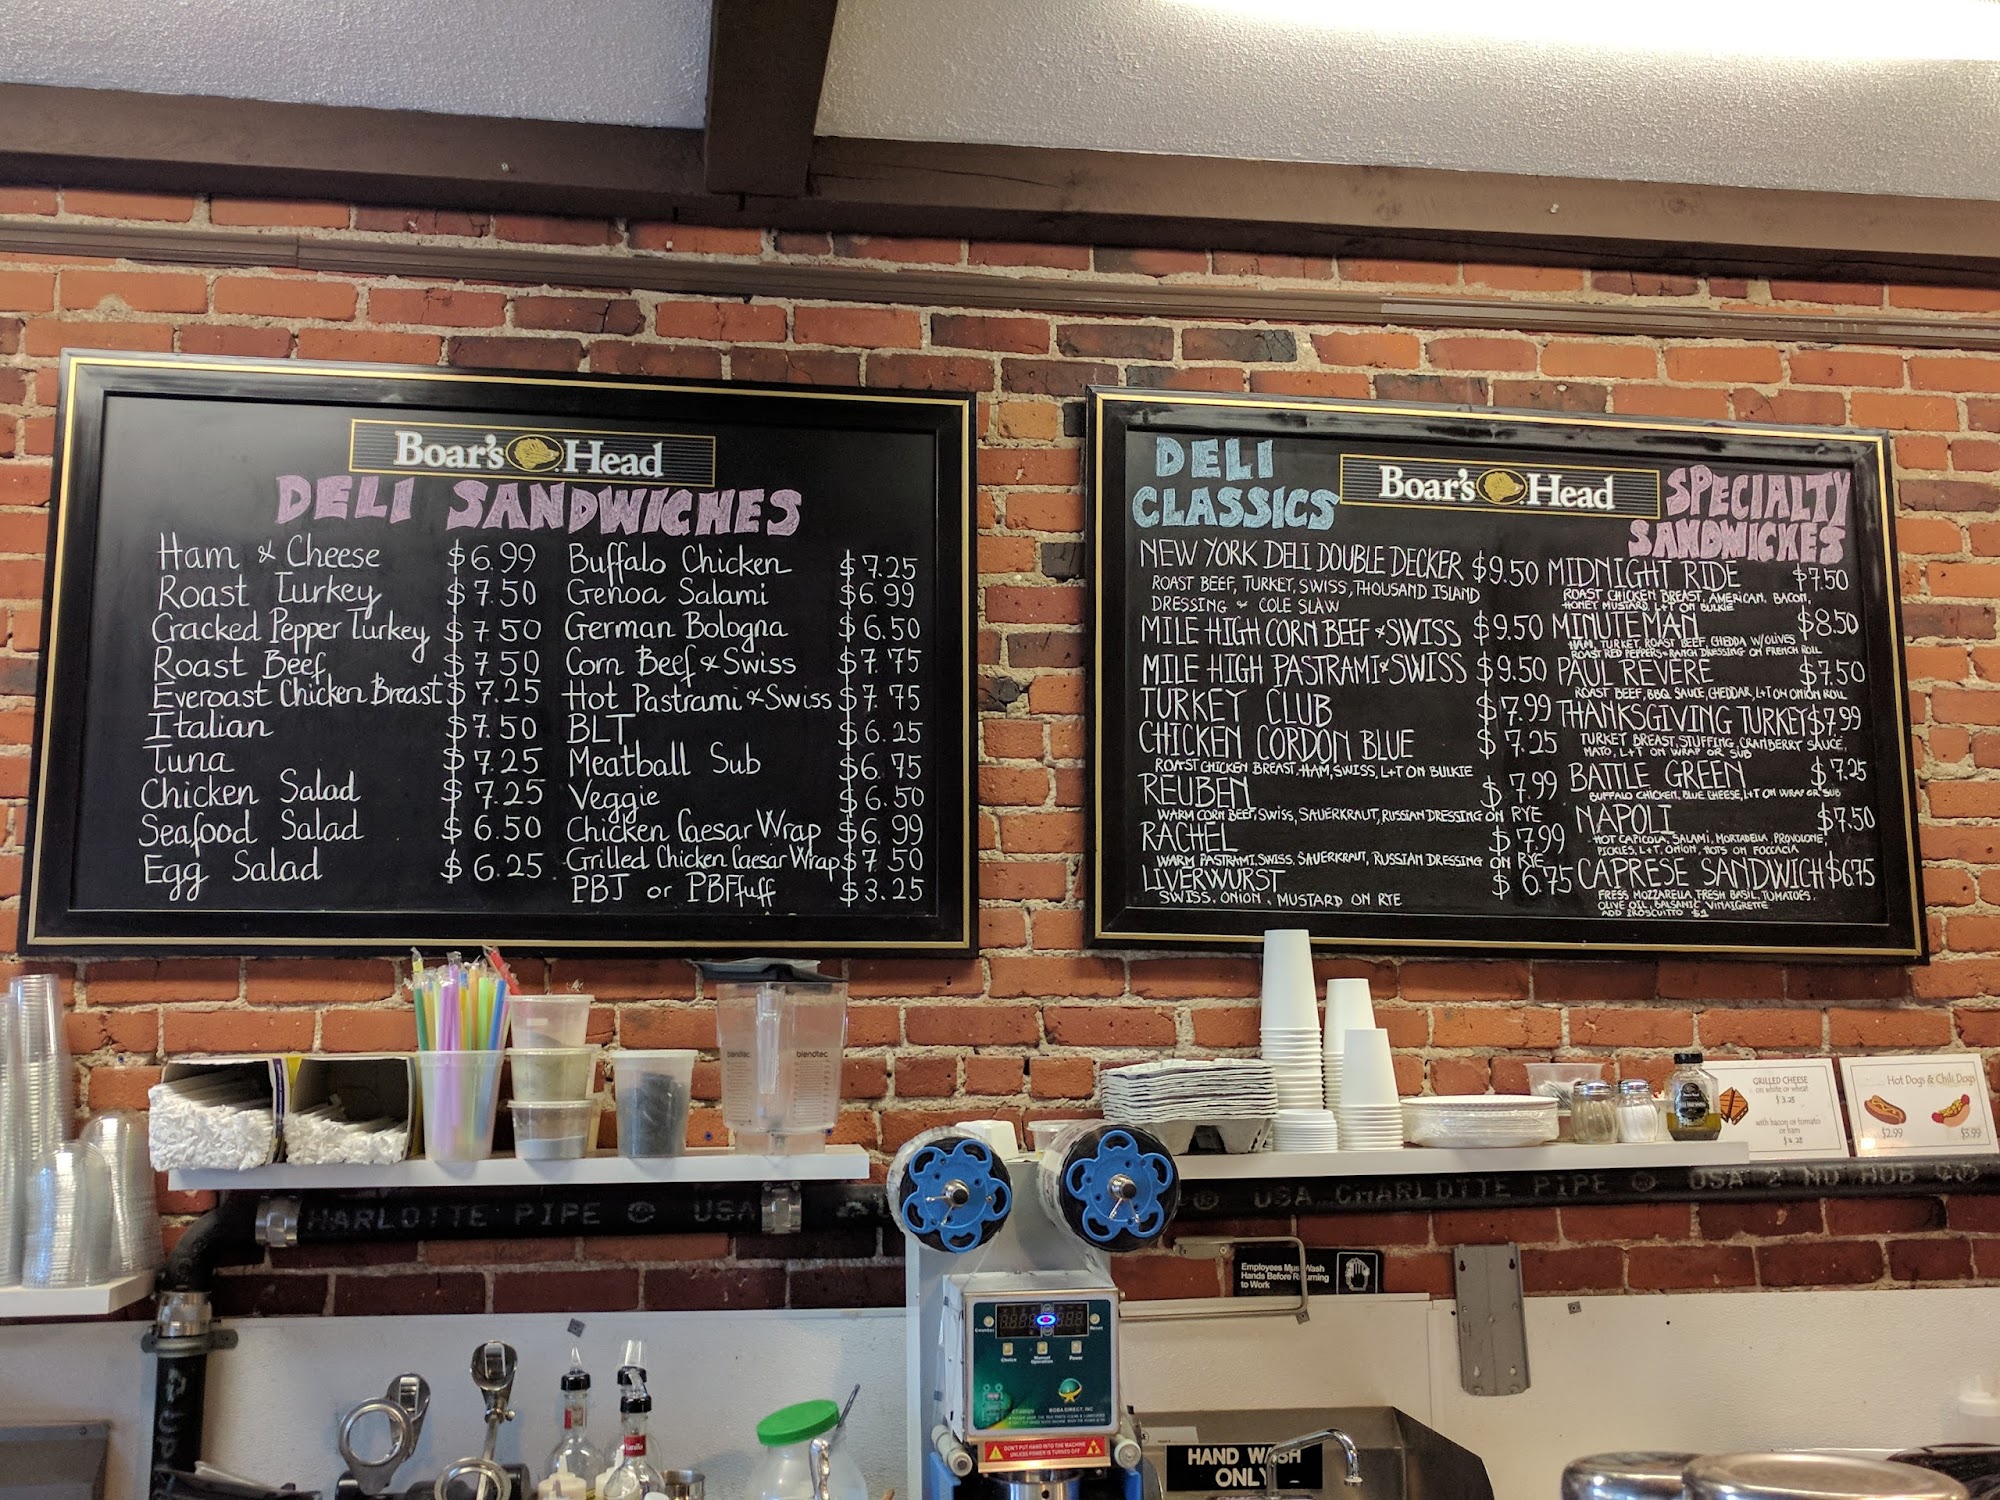 Boar's Head
DELI SANDWICHES
Ham & Cheese $6.99
Roast Turkey $7.50
Cracked Pepper Turkey $7.50
Roast Beef $7.50
Everoast Chicken Breast $7.25
Italian $7.50
Tuna $7.25
Chicken Salad $7.25
Seafood Salad $6.50
Egg Salad $6.25
Buffalo Chicken $7.25
Genoa Salami $6.99
German Bologna $6.50
Corn Beef & Swiss $7.75
Hot Pastrami & Swiss $7.75
BLT $6.25
Meatball Sub $6.75
Veggie $6.50
Chicken Caesar Wrap $6.99
Grilled Chicken Caesar Wrap $7.50
PBJ or PBFluff $3.25
DELI
CLASSICS
Boar's Head
NEW YORK DELI DOUBLE DECKER $9.50
ROAST BEEF, TURKEY, SWISS, THOUSAND ISLAND
DRESSING & COLE SLAW
MILE HIGH CORN BEEF & SWISS $9.50
MILE HIGH PASTRAMI & SWISS $9.50
TURKEY CLUB $7.99
CHICKEN CORDON BLUE $7.25
ROAST CHICKEN BREAST, HAM, SWISS, L+T ON BULKIE
REUBEN $7.99
WARM CORN BEEF, SWISS, SAUERKRAUT, RUSSIAN DRESSING ON RYE
RACHEL $7.99
WARM PASTRAMI, SWISS, SAUERKRAUT, RUSSIAN DRESSING ON RYE
LIVERWURST $6.75
SWISS, ONION, MUSTARD ON RYE
SPECIALTY
SANDWICHES
MIDNIGHT RIDE $7.50
ROAST CHICKEN BREAST, AMERICAN, BACON,
HONEY MUSTARD, L+T ON BULKIE
MINUTEMAN $8.50
HAM, TURKEY, ROAST BEEF, CHEDDA W/OLIVES
ROAST RED PEPPERS + RANCH DRESSING ON FRENCH ROLL
PAUL REVERE $7.50
ROAST BEEF, BBQ SAUCE, CHEDDAR, L+T ON ONION ROLL
THANKSGIVING TURKEY $7.99
TURKEY BREAST, STUFFING, CRANBERRY SAUCE,
MAYO, L+T ON WRAP OR SUB
BATTLE GREEN $7.25
BUFFALO CHICKEN, BLUE CHEESE, L+T ON WRAP OR SUB
NAPOLI $7.50
HOT CAPICOLA, SALAMI, MORTADELLA, PROVOLONE,
PICKLES, L+T, ONION, HOTS ON FOCCACIA
CAPRESE SANDWICH $6.75
FRESS MOZZARELLA, FRESH BASIL, TOMATOES,
OLIVE OIL, BALSAMIC VINAIGRETTE
ADD PROSCUITTO $1
blendtec blendtec
GRILLED CHEESE
on white or wheat
$3.25
with bacon or tomato
or ham
Hot Dogs & Chili Dogs
$2.99 $3.99
HARLOTTE PIPE © USA
USA CHARLOTTE PIPE ® USA 2 NO HUB
Employees Must Wash
Hands Before Returning
to Work
Counter Reset
Choice Manual Operation Power
BOBA DIRECT, INC
DON'T PUT HAND INTO THE MACHINE
UNLESS POWER IS TURNED OFF
Vanilla
HAND WASH
ONLY